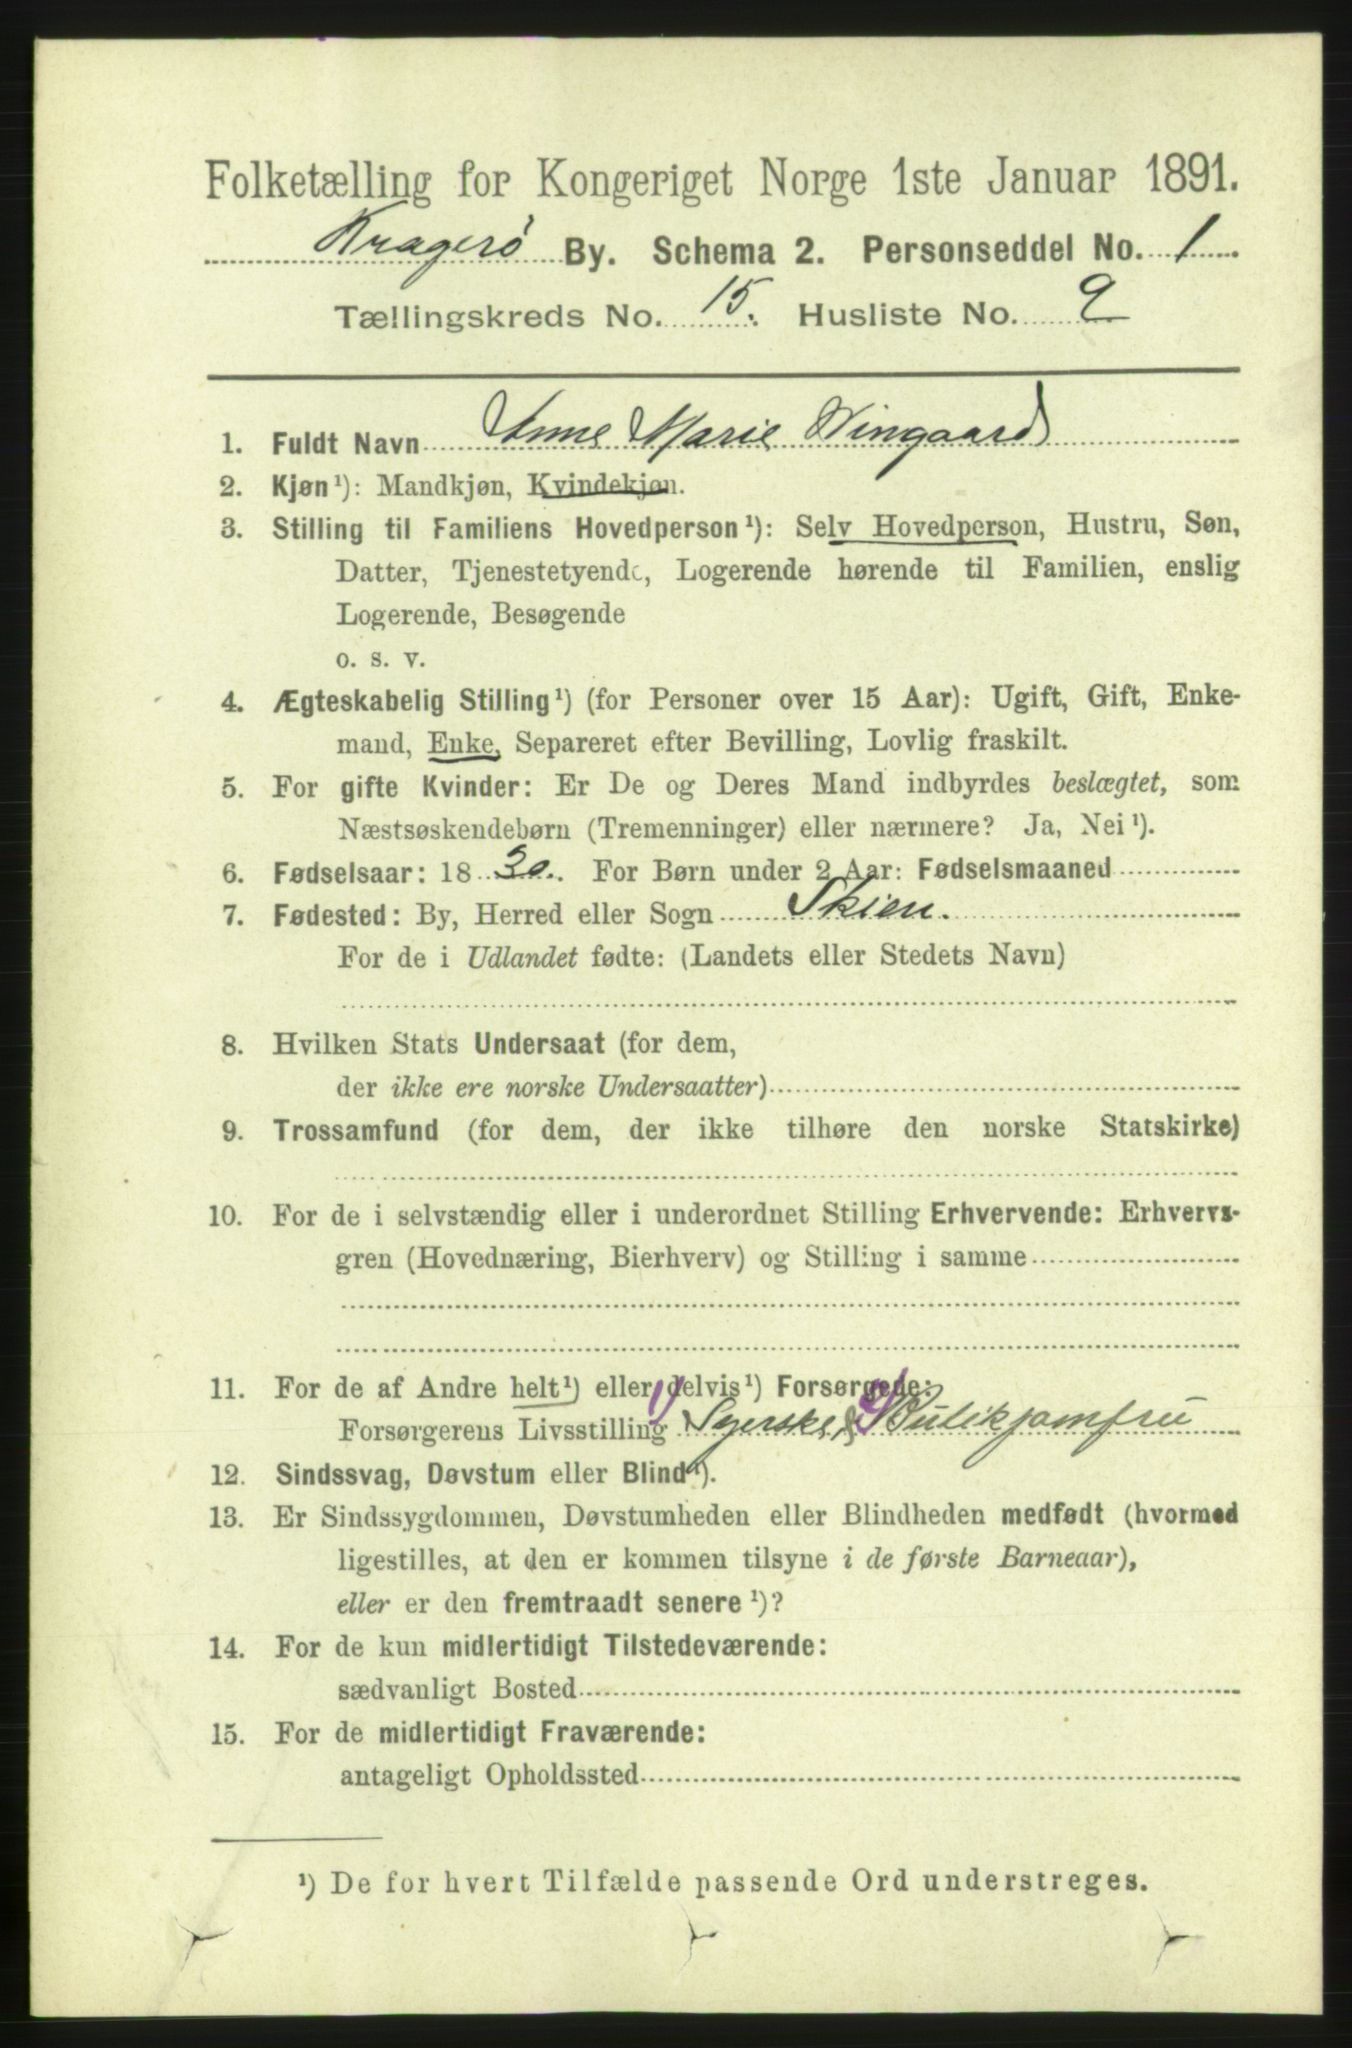 Folketælling for Kongeriget Norge 1ste Januar 1891.
Kragerø By. Schema 2. Personseddel No. 1
Tællingskreds No. 15. Husliste No. 9
1. Fuldt Navn Anne Marie Wingaard
2. Kjøn¹): Mandkjøn, Kvindekjøn.
3. Stilling til Familiens Hovedperson¹): Selv Hovedperson, Hustru, Søn,
Datter, Tjenestetyende, Logerende hørende til Familien, enslig
Logerende, Besøgende
o. s. v.
4. Ægteskabelig Stilling¹) (for Personer over 15 Aar): Ugift, Gift, Enke-
mand, Enke, Separeret efter Bevilling, Lovlig fraskilt.
5. For gifte Kvinder: Er De og Deres Mand indbyrdes beslægtet, som
Næstsøskendebørn (Tremenninger) eller nærmere? Ja, Nei¹).
6. Fødselsaar: 1830. For Børn under 2 Aar: Fødselsmaaned
7. Fødested: By, Herred eller Sogn Skien.
For de i Udlandet fødte: (Landets eller Stedets Navn)
8. Hvilken Stats Undersaat (for dem,
der ikke ere norske Undersaatter)
9. Trossamfund (for dem, der ikke tilhøre den norske Statskirke)
10. For de i selvstændig eller i underordnet Stilling Erhvervende: Erhvervs-
gren (Hovednæring, Bierhverv) og Stilling i samme
11. For de af Andre helt¹) eller delvis¹) Forsørgede:
Forsørgerens Livsstilling 1) Syerske & 2) Butikjomfru
12. Sindssvag, Døvstum eller Blind¹).
13. Er Sindssygdommen, Døvstumheden eller Blindheden medfødt (hvormed
ligestilles, at den er kommen tilsyne i de første Barneaar),
eller er den fremtraadt senere¹)?
14. For de kun midlertidigt Tilstedeværende:
sædvanligt Bosted
15. For de midlertidigt Fraværende:
antageligt Opholdssted
¹) De for hvert Tilfælde passende Ord understreges.